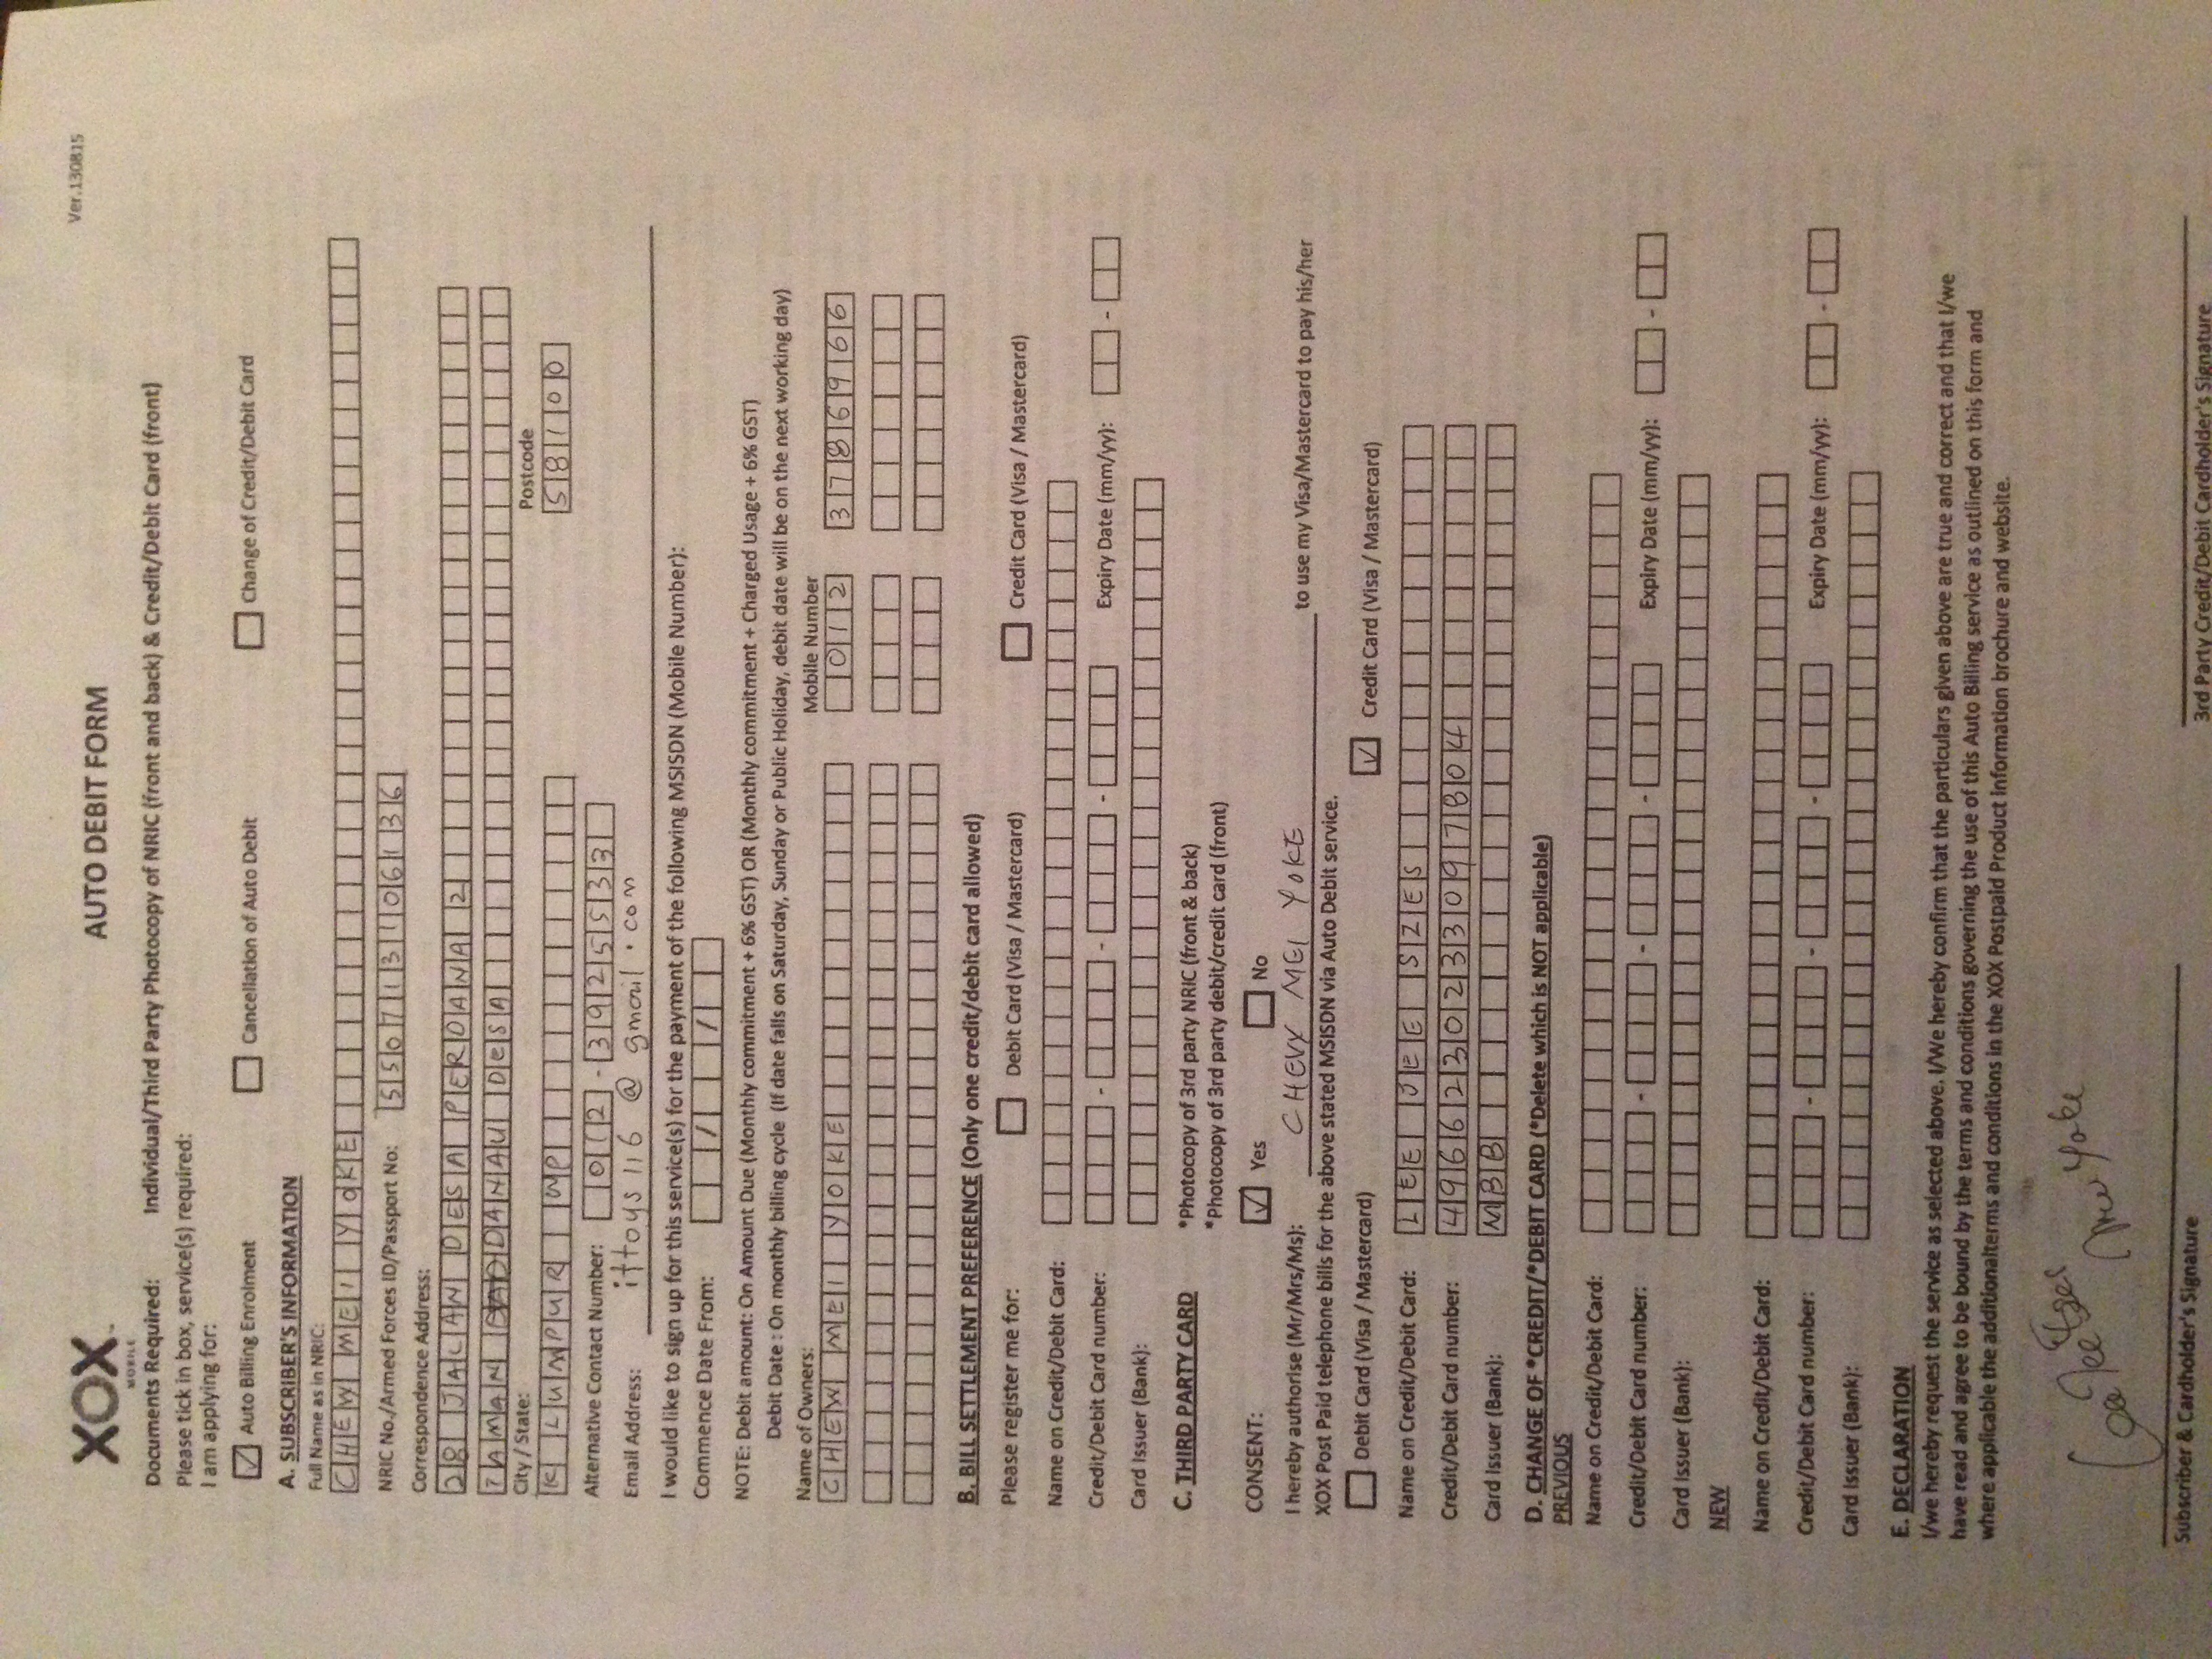 XOX
MOBILE
AUTO DEBIT FORM
Ver.130815
Documents Required: Individual/Third Party Photocopy of NRIC (front and back) & Credit/Debit Card (front)
Please tick in box, service(s) required:
I am applying for:
☑ Auto Billing Enrolment ☐ Cancellation of Auto Debit ☐ Change of Credit/Debit Card
A. SUBSCRIBER'S INFORMATION
Full Name as in NRIC:
CHEW MEI YOKE
NRIC No./Armed Forces ID/Passport No: 550713106136
Correspondence Address:
28 JALAN DESA PERDANA 2
TAMAN DANAU DESA
City / State: Postcode
K LUMPUR WP 58100
Alternative Contact Number: 012 - 3925533
Email Address: ittoys116@gmail.com
I would like to sign up for this service(s) for the payment of the following MSISDN (Mobile Number):
Commence Date From: / /
NOTE: Debit amount: On Amount Due (Monthly commitment + 6% GST) OR (Monthly commitment + Charged Usage + 6% GST)
Debit Date : On monthly billing cycle (If date falls on Saturday, Sunday or Public Holiday, debit date will be on the next working day)
Name of Owners: Mobile Number
CHEW MEI YOKE 012 3786966
B. BILL SETTLEMENT PREFERENCE (Only one credit/debit card allowed)
Please register me for: ☐ Debit Card (Visa / Mastercard) ☐ Credit Card (Visa / Mastercard)
Name on Credit/Debit Card:
Credit/Debit Card number: - - - Expiry Date (mm/yy): -
Card Issuer (Bank):
C. THIRD PARTY CARD *Photocopy of 3rd party NRIC (front & back)
*Photocopy of 3rd party debit/credit card (front)
CONSENT: ☑ Yes ☐ No
I hereby authorise (Mr/Mrs/Ms): CHEW MEI YOKE to use my Visa/Mastercard to pay his/her
XOX Post Paid telephone bills for the above stated MSISDN via Auto Debit service.
☐ Debit Card (Visa / Mastercard) ☑ Credit Card (Visa / Mastercard)
Name on Credit/Debit Card: LEE JEE SZES
Credit/Debit Card number: 4966230233097804
Card Issuer (Bank): MBB
D. CHANGE OF *CREDIT/*DEBIT CARD (*Delete which is NOT applicable)
PREVIOUS
Name on Credit/Debit Card:
Credit/Debit Card number: - - - Expiry Date (mm/yy): -
Card Issuer (Bank):
NEW
Name on Credit/Debit Card:
Credit/Debit Card number: - - - Expiry Date (mm/yy): -
Card Issuer (Bank):
E. DECLARATION
I/we hereby request the service as selected above. I/We hereby confirm that the particulars given above are true and correct and that I/we
have read and agree to be bound by the terms and conditions governing the use of this Auto Billing service as outlined on this form and
where applicable the additionalterms and conditions in the XOX Postpaid Product information brochure and website.
Yoke
Subscriber & Cardholder's Signature
3rd Party Credit/Debit Cardholder's Signature